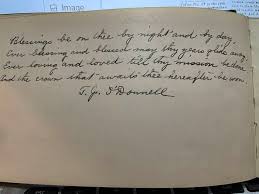 Image
Blessings be on thee by night and by day,
Ever blessing and blessed may thy years glide away,
Ever loving and loved till thy mission be done
And the crown that awaits thee hereafter be won.
T. J. O'Donnell